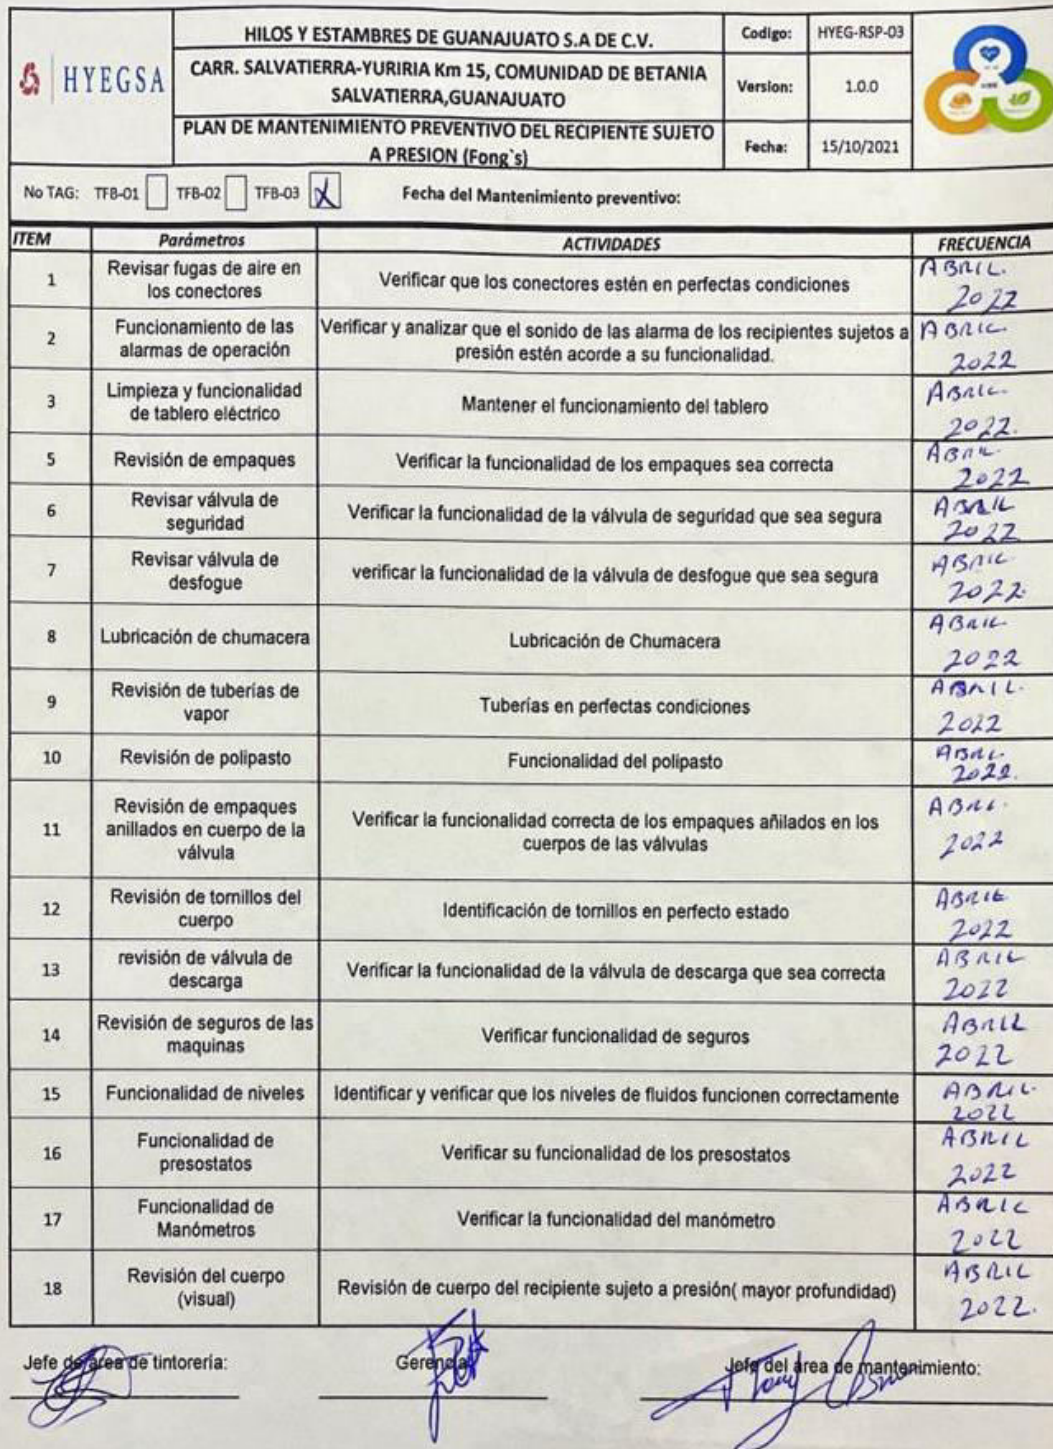 HYEGSA
HILOS Y ESTAMBRES DE GUANAJUATO S.A DE C.V.
CARR. SALVATIERRA-YURIRIA Km 15, COMUNIDAD DE BETANIA
SALVATIERRA,GUANAJUATO
PLAN DE MANTENIMIENTO PREVENTIVO DEL RECIPIENTE SUJETO
A PRESION (Fong`s)
Codigo: HYEG-RSP-03
Version: 1.0.0
Fecha: 15/10/2021
No TAG: TFB-01 TFB-02 TFB-03 X Fecha del Mantenimiento preventivo:
ITEM Parámetros ACTIVIDADES FRECUENCIA
1 Revisar fugas de aire en
los conectores
Verificar que los conectores estén en perfectas condiciones
ABRIL.
2022
2 Funcionamiento de las
alarmas de operación
Verificar y analizar que el sonido de las alarma de los recipientes sujetos a
presión estén acorde a su funcionalidad.
ABRIL.
2022
3 Limpieza y funcionalidad
de tablero eléctrico
Mantener el funcionamiento del tablero
ABRIL.
2022.
5 Revisión de empaques
Verificar la funcionalidad de los empaques sea correcta
ABRIL
2022
6 Revisar válvula de
seguridad
Verificar la funcionalidad de la válvula de seguridad que sea segura
ABRIL
2022
7 Revisar válvula de
desfogue
verificar la funcionalidad de la válvula de desfogue que sea segura
ABRIL
2022.
8 Lubricación de chumacera
Lubricación de Chumacera
ABRIL
2022
9 Revisión de tuberías de
vapor
Tuberías en perfectas condiciones
ABRIL.
2022
10 Revisión de polipasto
Funcionalidad del polipasto
ABRIL.
2022.
11 Revisión de empaques
anillados en cuerpo de la
válvula
Verificar la funcionalidad correcta de los empaques añilados en los
cuerpos de las válvulas
ABRIL.
2022
12 Revisión de tornillos del
cuerpo
Identificación de tornillos en perfecto estado
ABRIL
2022
13 revisión de válvula de
descarga
Verificar la funcionalidad de la válvula de descarga que sea correcta
ABRIL
2022
14 Revisión de seguros de las
maquinas
Verificar funcionalidad de seguros
ABRIL
2022
15 Funcionalidad de niveles
Identificar y verificar que los niveles de fluidos funcionen correctamente
ABRIL.
2022
16 Funcionalidad de
presostatos
Verificar su funcionalidad de los presostatos
ABRIL
2022
17 Funcionalidad de
Manómetros
Verificar la funcionalidad del manómetro
ABRIL
2022
18 Revisión del cuerpo
(visual)
Revisión de cuerpo del recipiente sujeto a presión( mayor profundidad)
ABRIL
2022.
Jefe de área de tintorería: Gerencia: Jefe del área de mantenimiento: